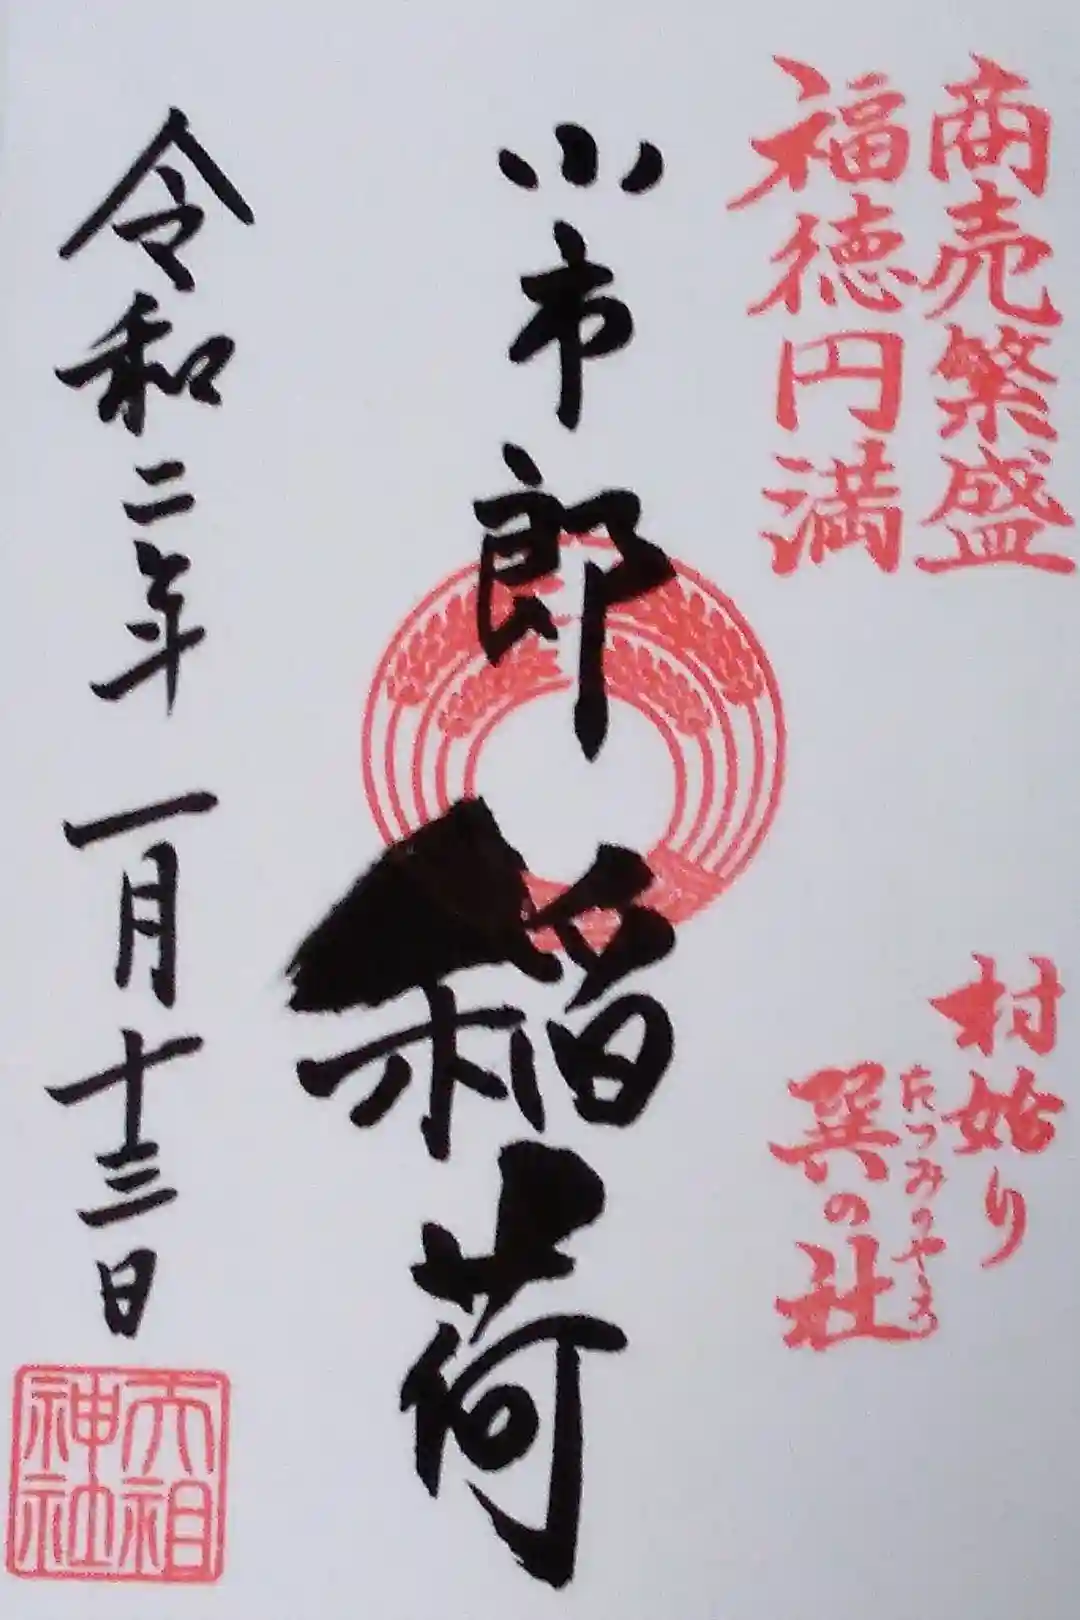 商売繁盛
福徳円満
村始り
たつみのやしろ
巽の社
小市郎稲荷
令和二年一月十三日
天祖
神社